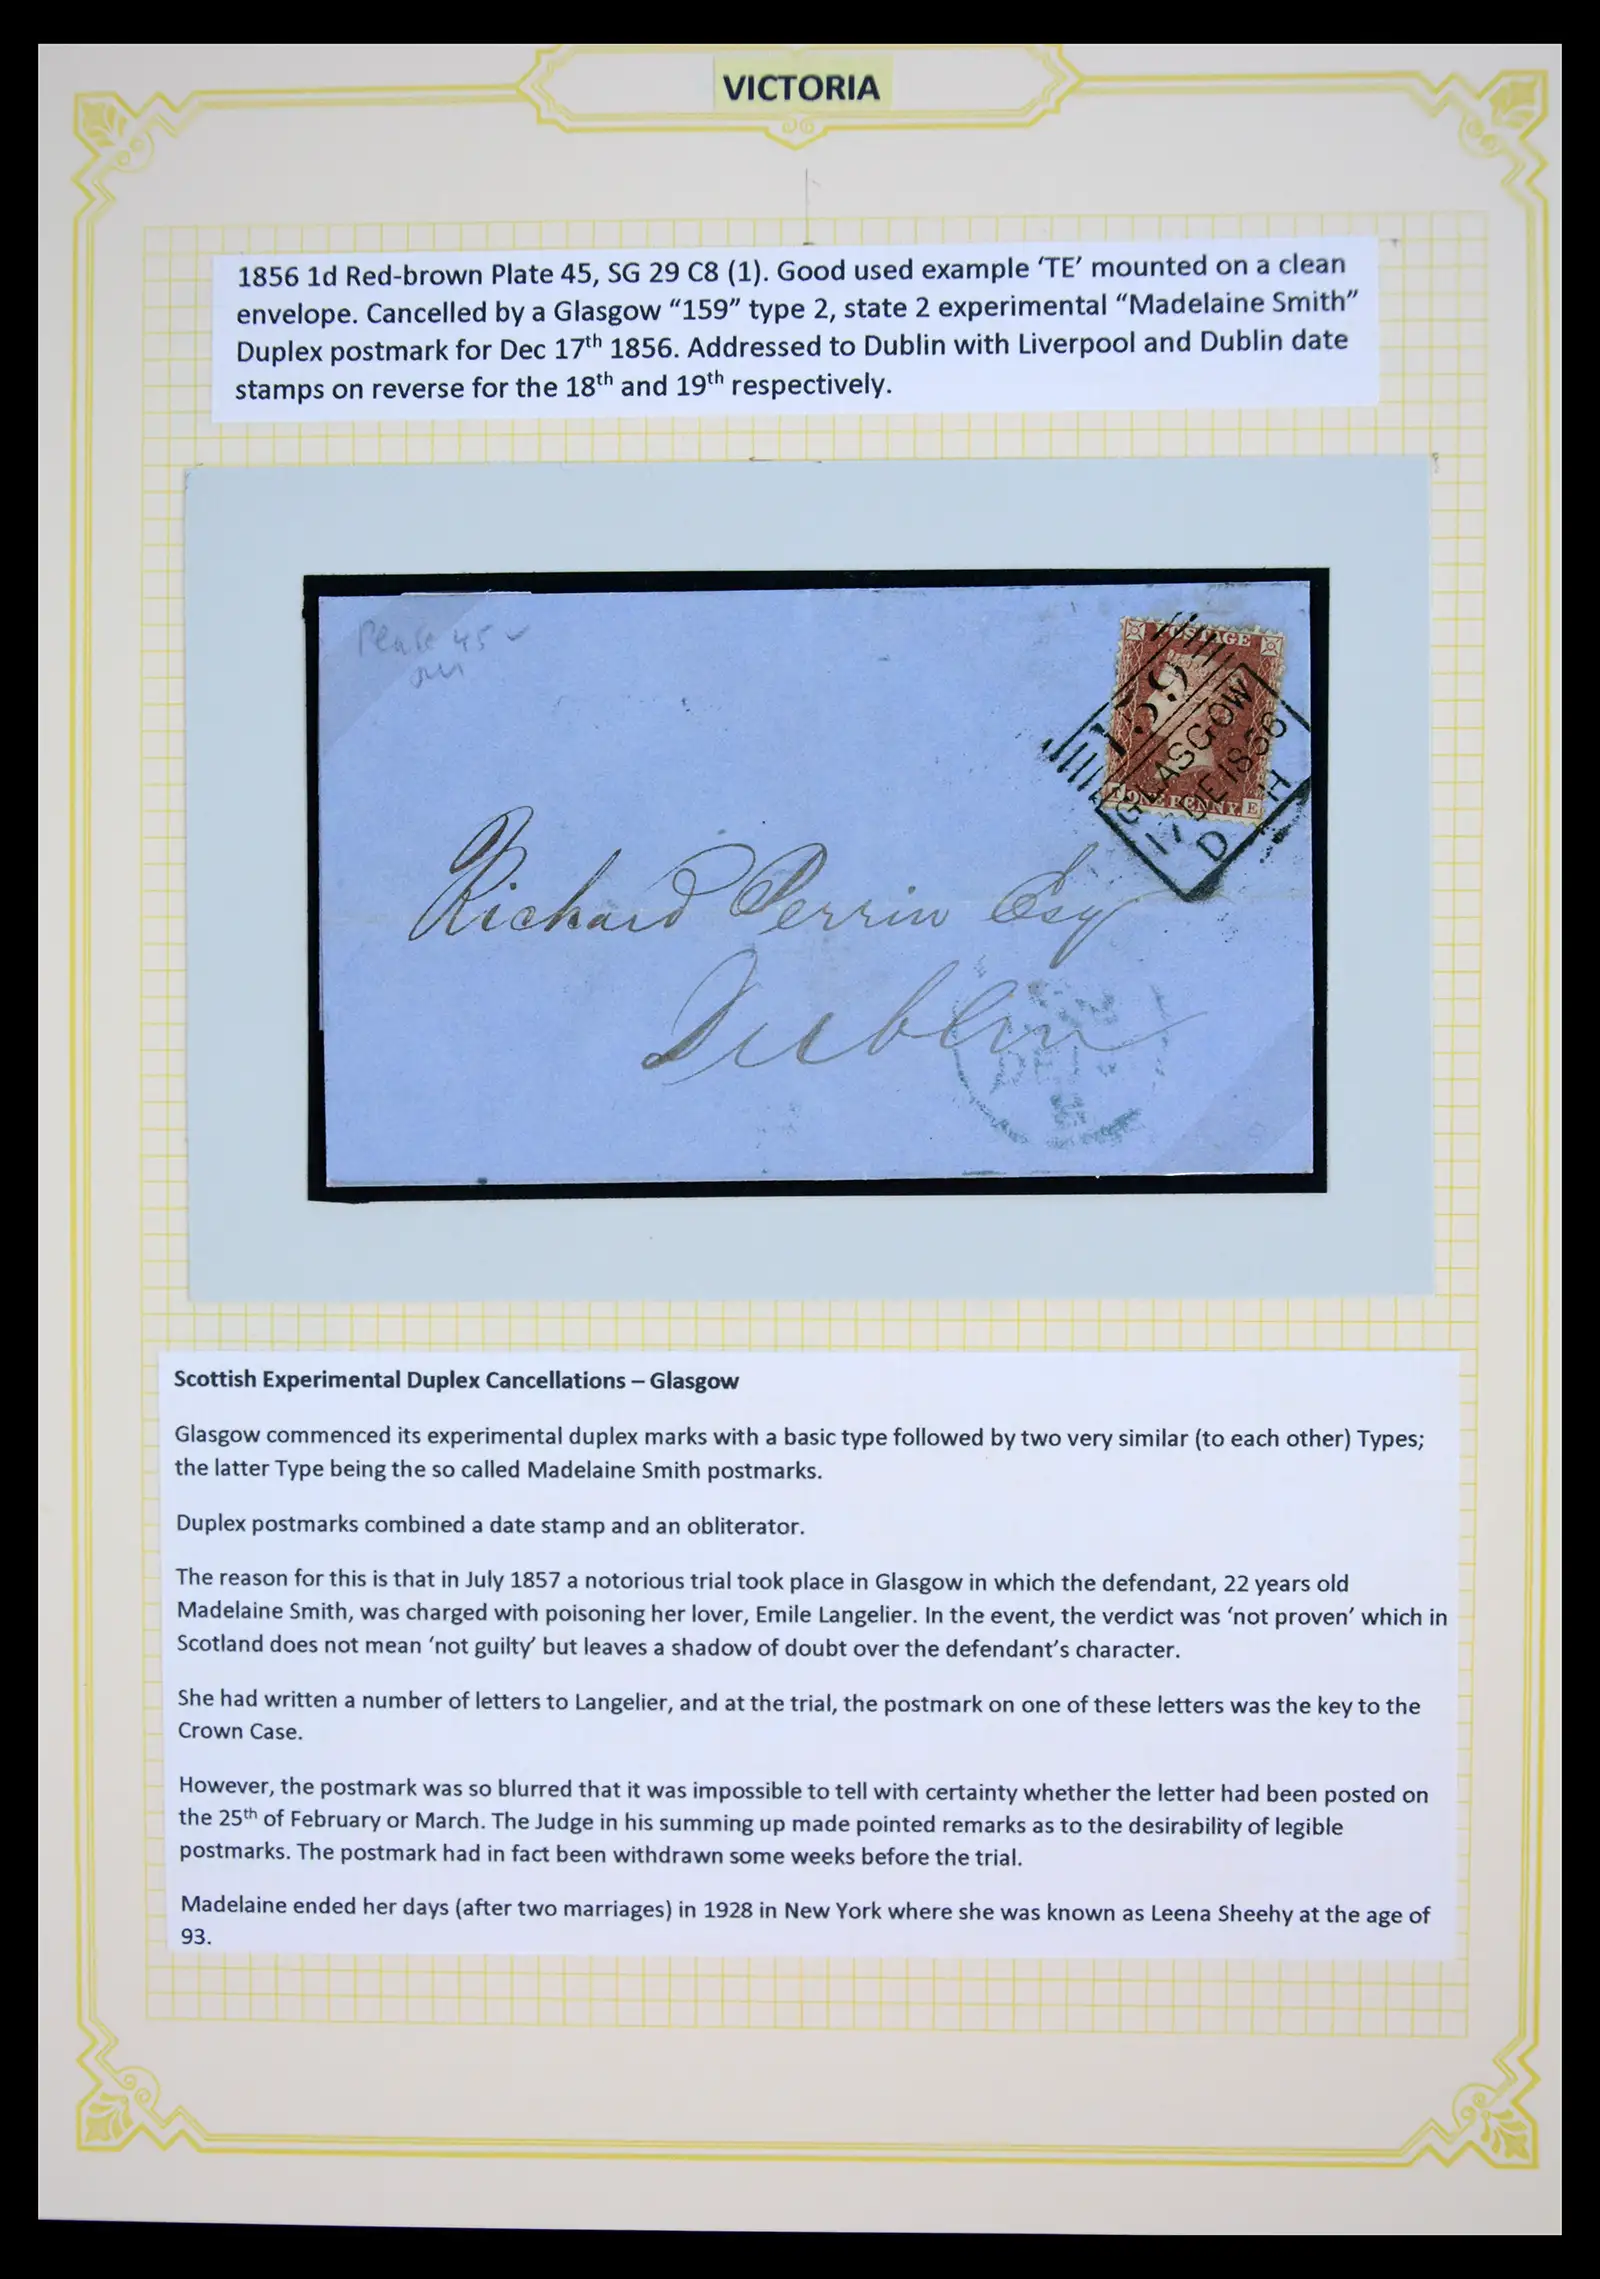 VICTORIA
1856 1d Red-brown Plate 45, SG 29 C8 (1). Good used example ‘TE’ mounted on a clean
envelope. Cancelled by a Glasgow “159” type 2, state 2 experimental “Madelaine Smith”
Duplex postmark for Dec 17th 1856. Addressed to Dublin with Liverpool and Dublin date
stamps on reverse for the 18th and 19th respectively.
Plate 45
POSTAGE
159
GLASGOW
17 DE 1856
D H
T ONE PENNY. E
Richard Perrin Esq
Dublin
Scottish Experimental Duplex Cancellations – Glasgow
Glasgow commenced its experimental duplex marks with a basic type followed by two very similar (to each other) Types;
the latter Type being the so called Madelaine Smith postmarks.
Duplex postmarks combined a date stamp and an obliterator.
The reason for this is that in July 1857 a notorious trial took place in Glasgow in which the defendant, 22 years old
Madelaine Smith, was charged with poisoning her lover, Emile Langelier. In the event, the verdict was ‘not proven’ which in
Scotland does not mean ‘not guilty’ but leaves a shadow of doubt over the defendant’s character.
She had written a number of letters to Langelier, and at the trial, the postmark on one of these letters was the key to the
Crown Case.
However, the postmark was so blurred that it was impossible to tell with certainty whether the letter had been posted on
the 25th of February or March. The Judge in his summing up made pointed remarks as to the desirability of legible
postmarks. The postmark had in fact been withdrawn some weeks before the trial.
Madelaine ended her days (after two marriages) in 1928 in New York where she was known as Leena Sheehy at the age of
93.